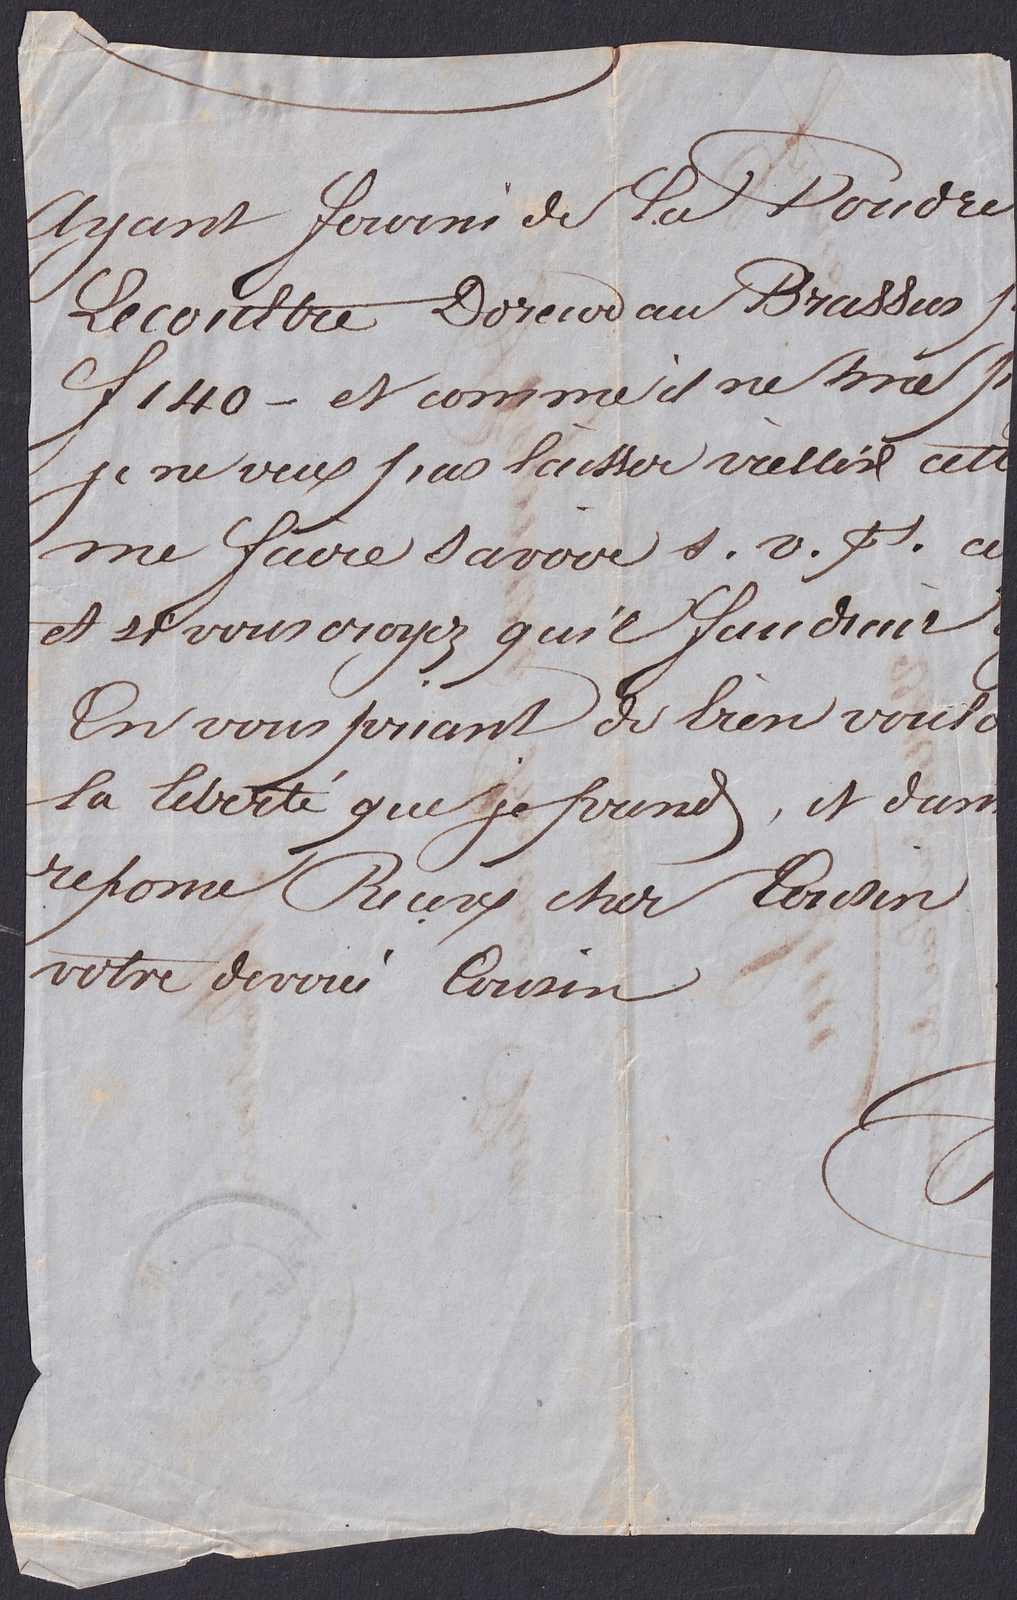 Ayant fourni de La Poudre
Lecoultre Doreur au Brassus p
f 140 - et comme il ne me p
je ne veux pas laisser viellir cett
me faire savoir s. v. p. ce
et si vous croyez qu'il faudrait
En vous priant de bien voulo
la liberté que je prend, et dans
reponse Recevez cher Cousin
votre devoué Cousin